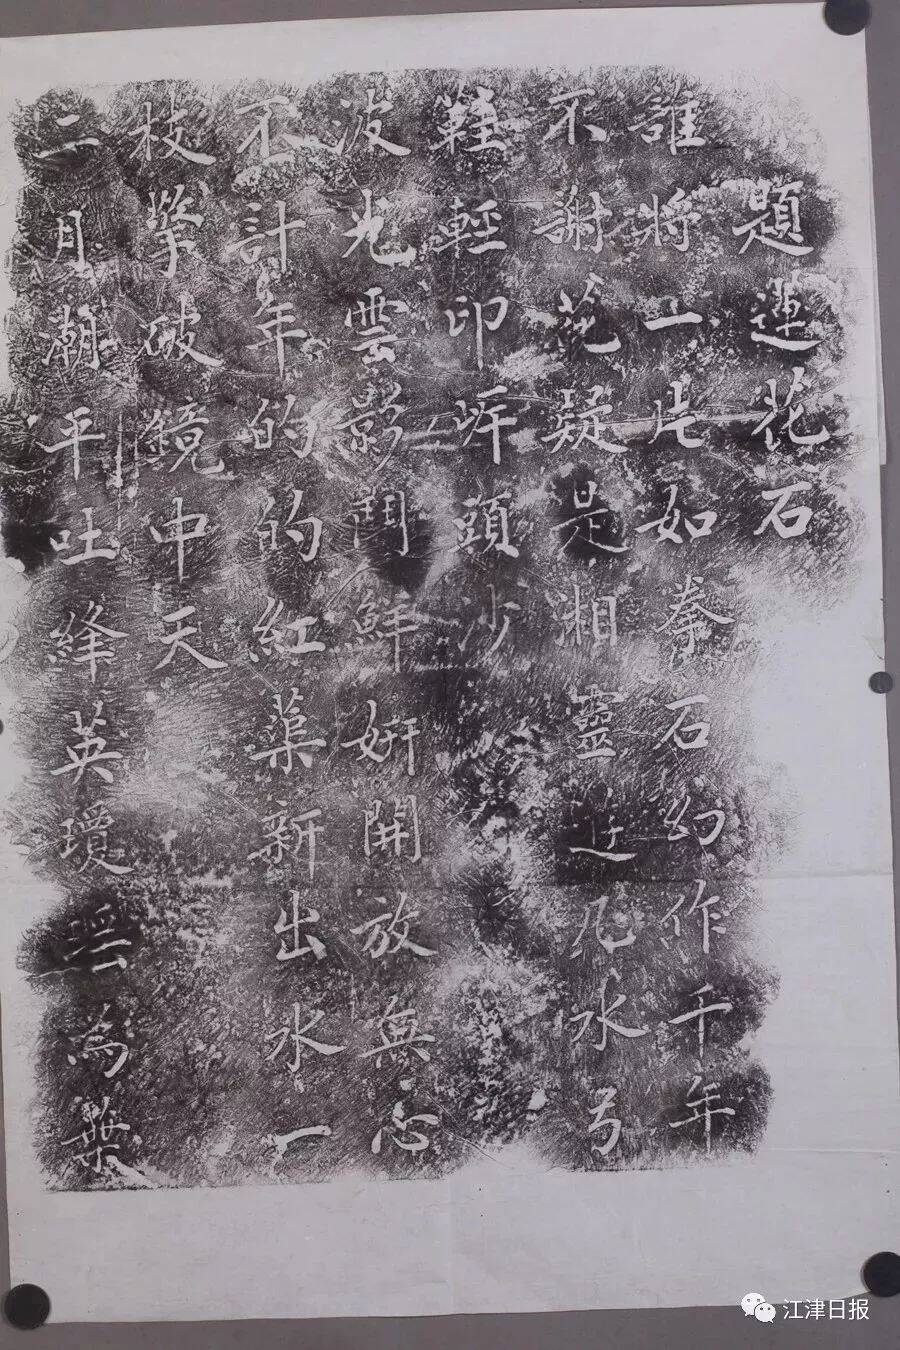 題蓮花石
誰將一片如拳石幻作千年
不謝花疑是湘靈遊水弓
鞋輕印岸頭沙
波光雲影鬪鮮妍開放無心
不計年的的紅蕖新出水一
枝擎破鏡中天
二月潮平吐絳英瓊為葉
江津日报